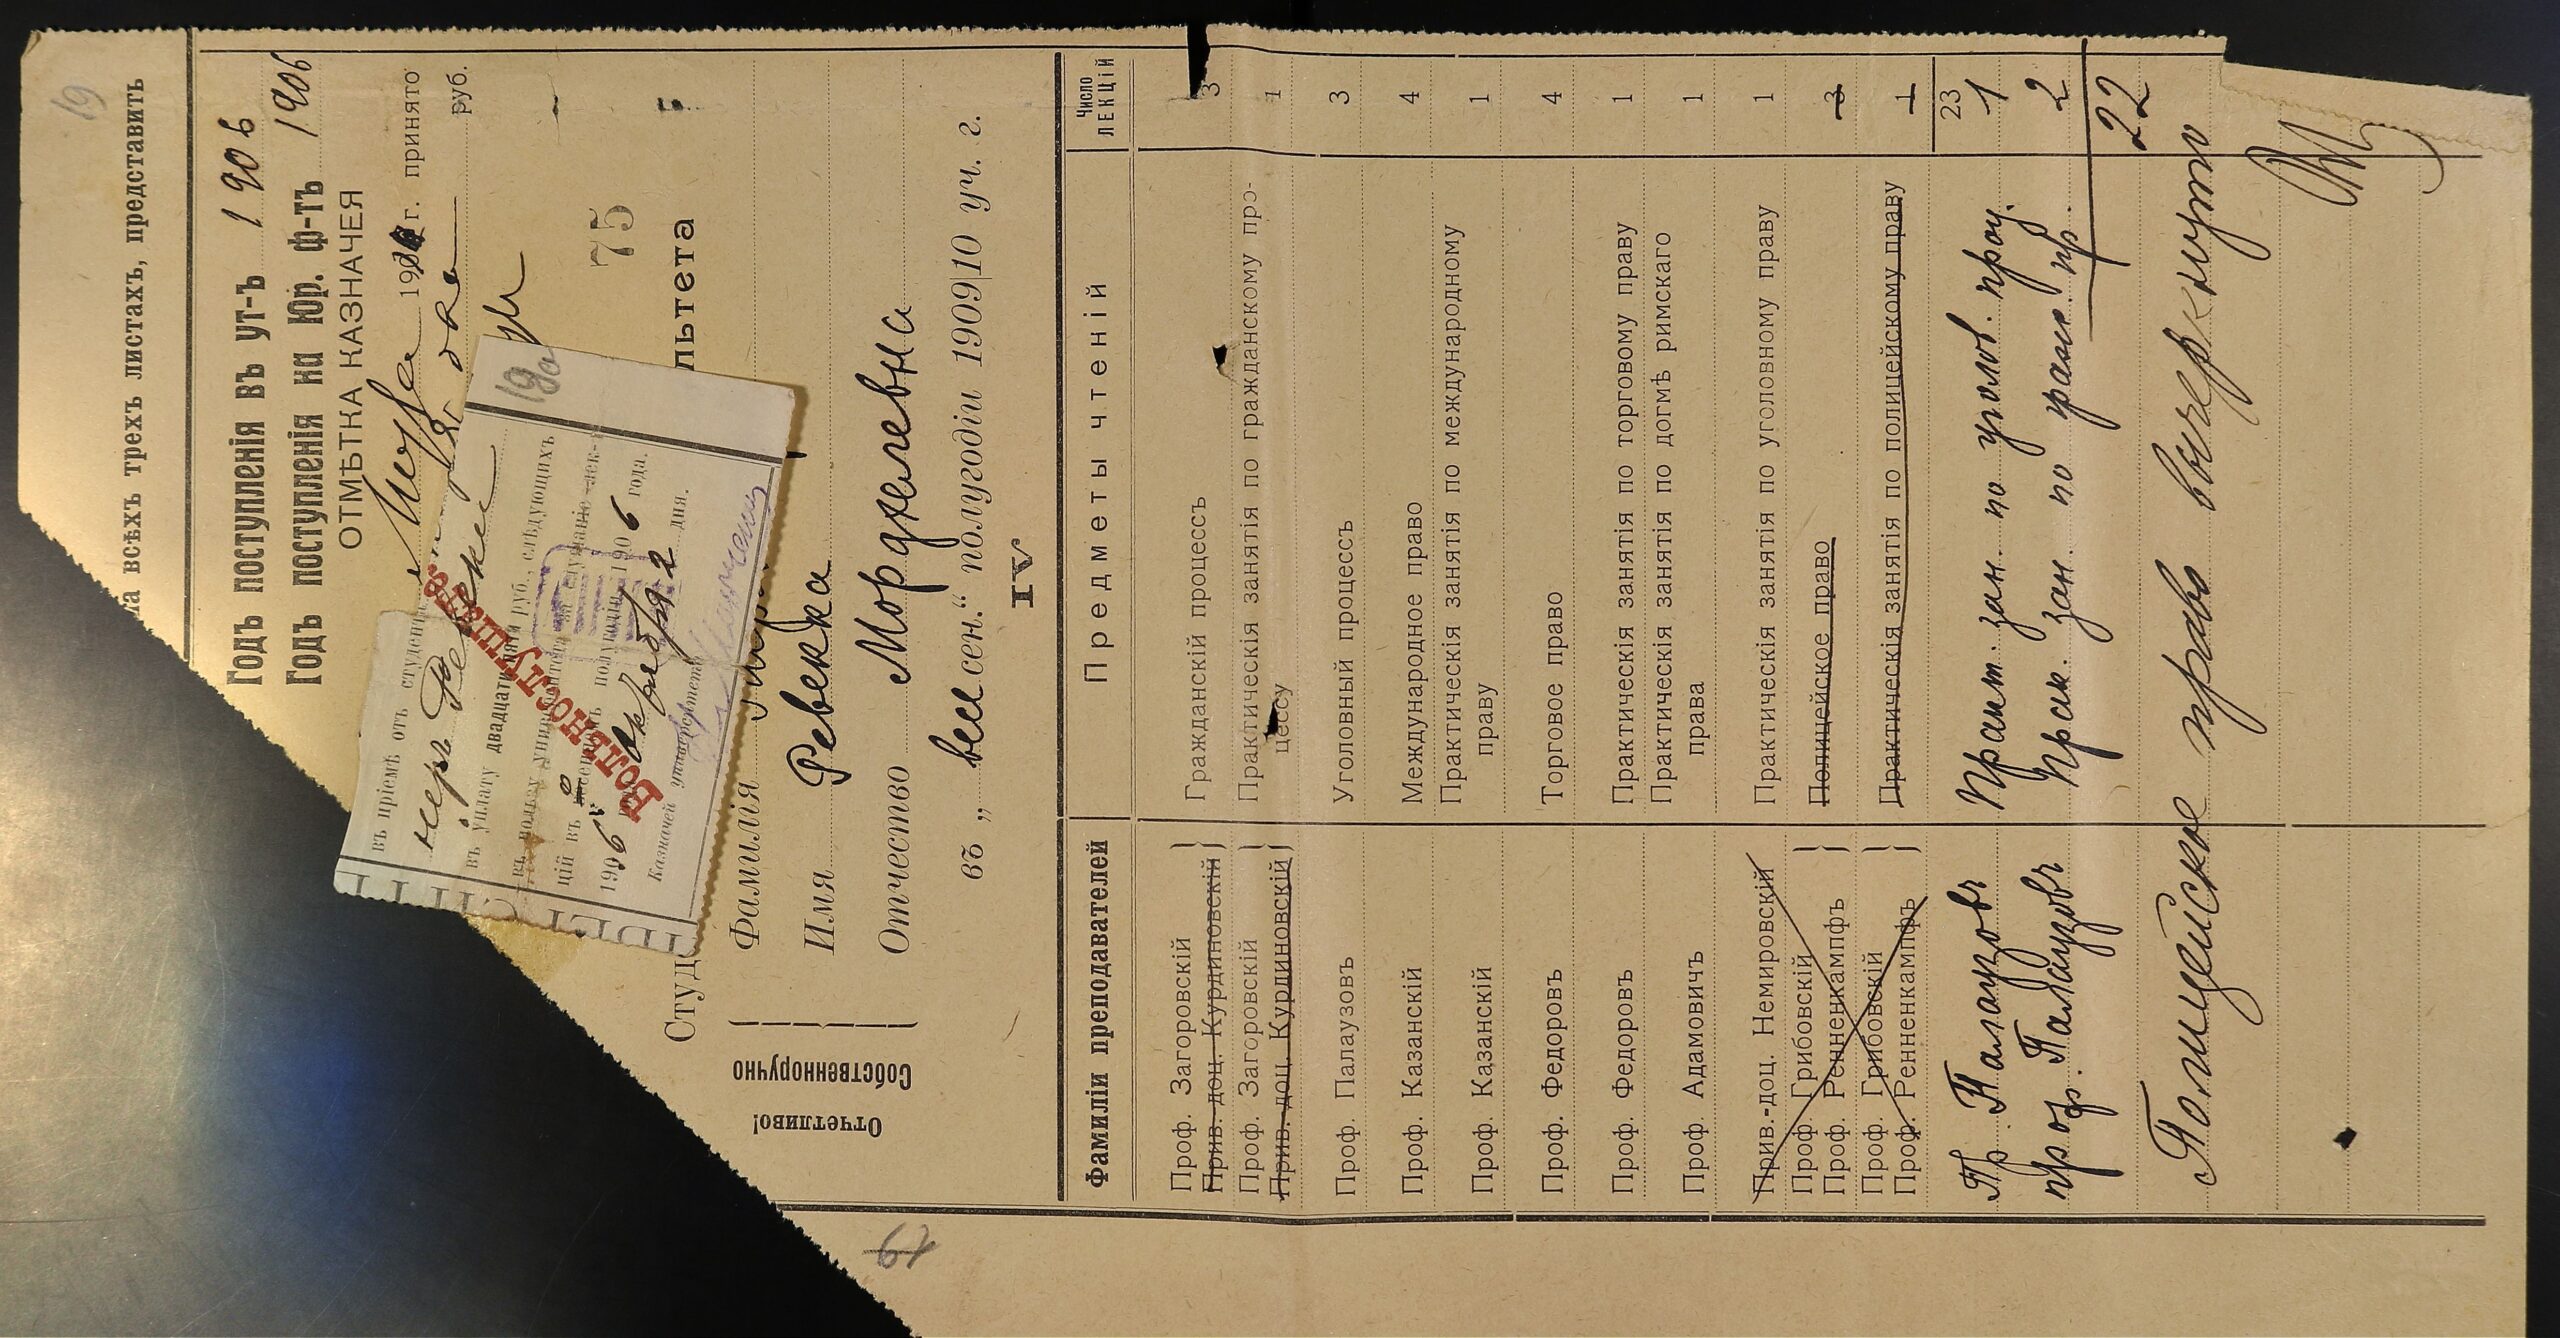 19
на всѣхъ трехъ листахъ, представить
Годъ поступленія въ ут-ъ 1906
Годъ поступленія на Юр. ф-тъ 1906
ОТМѢТКА КАЗНАЧЕЯ
г. принято
руб.
75
въ пріемѣ отъ студента
въ уплату двадцати пяти руб., слѣдующихъ
въ пользу университета за слушаніе лек-
цій въ осеннемъ полугодіи 1906 года.
1906 года Октября 2 дня.
Казначей университета
Вольнослушатель
19а
Студ
льтета
Отчетливо!
Собственноручно
Фамилія
Имя Ревекка
Отчество Морджелевна
въ „весен.“ полугодіи 1909|10 уч. г.
IV
Фамиліи преподавателей Предметы чтеній Число лекцій
Проф. Загоровскій Гражданскій процессъ 3
Прив.-доц. Курдиновскій
Проф. Загоровскій Практическія занятія по гражданскому про- 1
Прив.-доц. Курдиновскій цессу
Проф. Палаузовъ Уголовный процессъ 3
Проф. Казанскій Международное право 4
Проф. Казанскій Практическія занятія по международному 1
праву
Проф. Федоровъ Торговое право 4
Проф. Федоровъ Практическія занятія по торговому праву 1
Проф. Адамовичъ Практическія занятія по догмѣ римскаго 1
права
Прив.-доц. Немировскій Практическія занятія по уголовному праву 1
Проф. Грибовскій Полицейское право 3
Проф. Ренненкампфъ
Проф. Грибовскій Практическія занятія по полицейскому праву 1
Проф. Ренненкампфъ
23
Пр. Палаузовъ Практ. зан. по уголов. проц. 1
проф. Палаузовъ Прак. зан. по граж. пр. 2
22
Полицейское право вычеркнуто
67